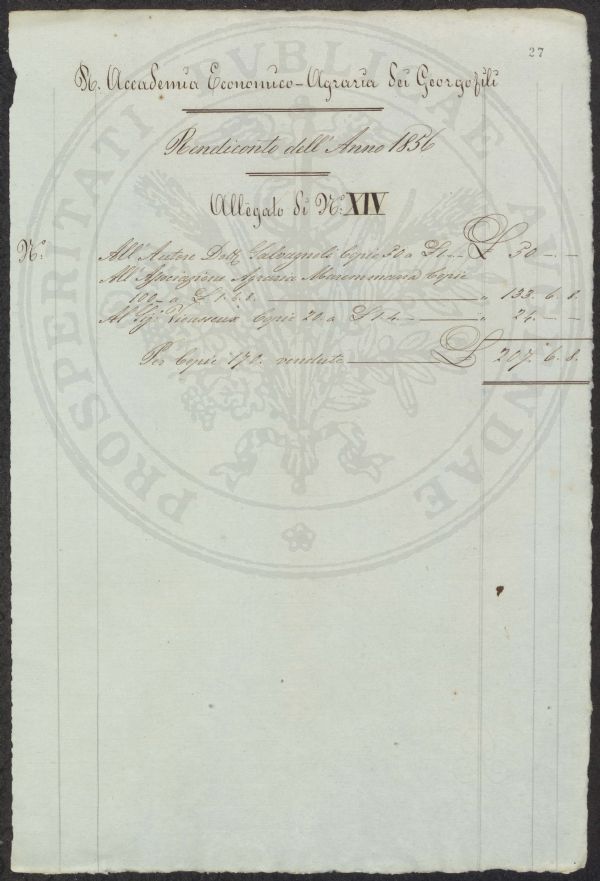 27
R. Accademia Economico-Agraria dei Georgofili
Rendiconto dell'Anno 1856
Allegato di N.º XIV
N.º
All'Autore Dott. Salvagnoli Copie 50 a £ 1.- £ 50 - -
All'Associazione Agraria Maremmana Copie
100 - a £ 1.6.8. " 133.6.8.
Al Sig.r Vieusseux Copie 20 a £ 1.4 - " 24. - -
Per Copie 170. vendute £ 207.6.8.
PROSPERITATI PVBLICAE AVGENDAE